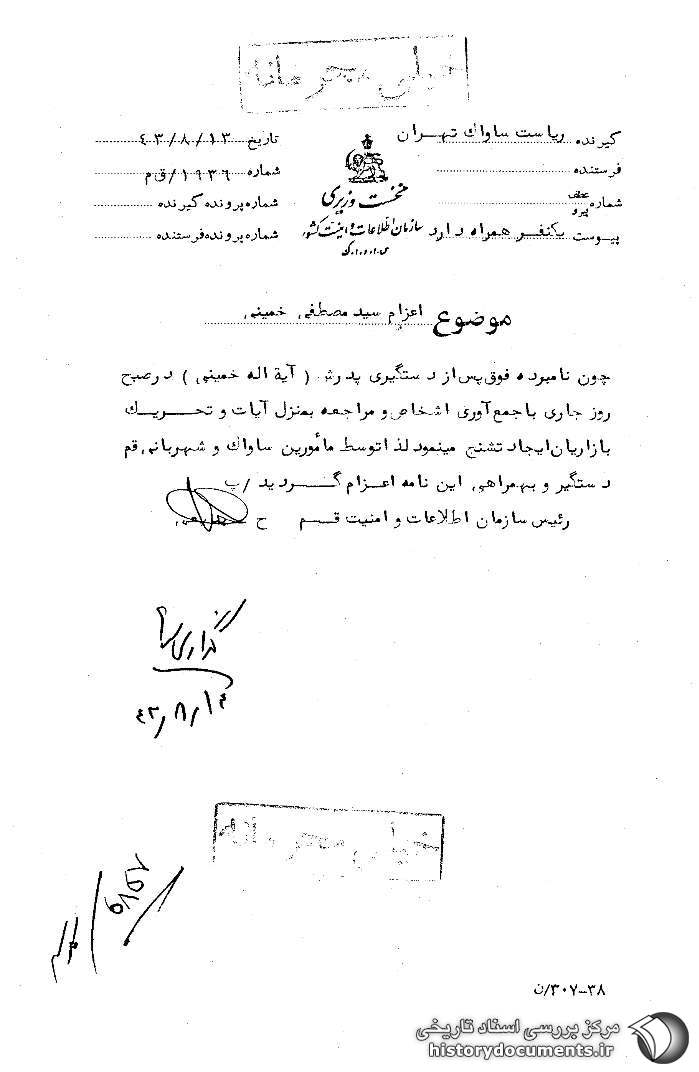 خیلی محرمانه
گیرنده ریاست ساواک تهران
فرستنده
شماره عطف پیرو
پیوست یکنفر همراه دارد
نخست وزیری
سازمان اطلاعات و امنیت کشور
س.ا.و.ا.ک
تاریخ ۴۳/۸/۱۳
شماره ۱۹۳۶/ق م
شماره پرونده گیرنده
شماره پرونده فرستنده
موضوع اعزام سید مصطفی خمینی
چون نامبوده فوق پس از دستگیری پدرش (آیة اله خمینی) در صبح
روز جاری با جمع آوری اشخاص و مراجعه بمنزل آیات و تحریک
بازاریان ایجاد تشنج مینمود لذا توسط مأمورین ساواک و شهربانی قم
دستگیر و بهمراهی این نامه اعزام گردید /پ
رئیس سازمان اطلاعات و امنیت قم ح
۴۳/۸/۱۴
خیلی محرمانه
۳۰۷-۳۸/ن
مرکز بررسی اسناد تاریخی
historydocuments.ir